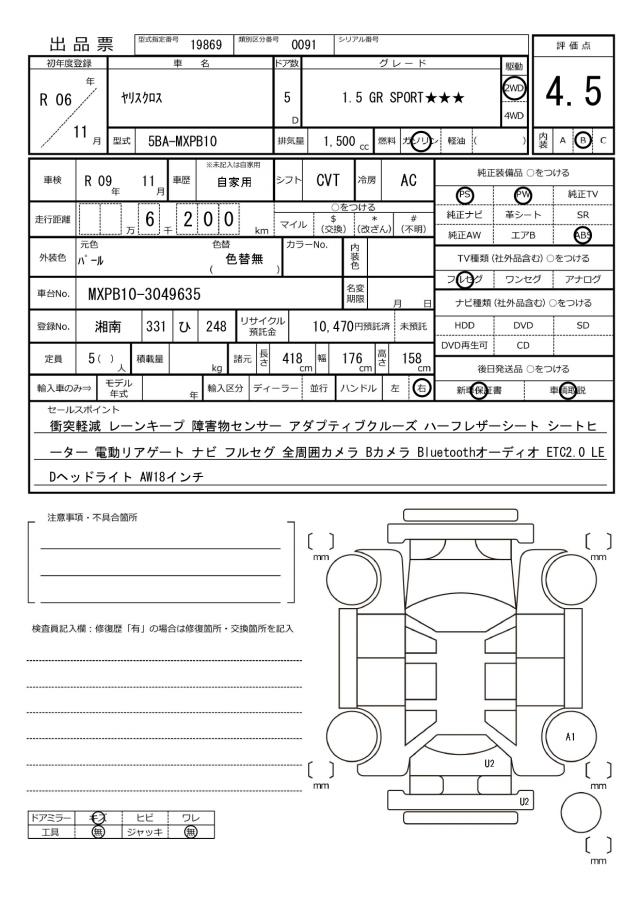 出品票
型式指定番号 19869 類別区分番号 0091 シリアル番号
評価点
4.5
内装 A B C
初年度登録 車名 ドア数 グレード 駆動
R 06 年 11 月
ヤリスクロス 5 D 1.5 GR SPORT★★★ 2WD 4WD
型式 5BA-MXPB10 排気量 1,500 cc 燃料 ガソリン 軽油 ( )
車検 R 09 年 11 月 車歴 ※未記入は自家用 自家用 シフト CVT 冷房 AC
走行距離 6 万 200 千 km
○をつける
マイル $ (交換) * (改ざん) # (不明)
外装色 元色 パール 色替 色替無 ( ) カラーNo. 内装色
車台No. MXPB10-3049635 名変期限 月 日
登録No. 湘南 331 ひ 248 リサイクル預託金 10,470円預託済 未預託
定員 5( ) 人 積載量 kg 諸元 長さ 418 cm 幅 176 cm 高さ 158 cm
輸入車のみ⇒ モデル年式 年 輸入区分 ディーラー 並行 ハンドル 左 右
純正装備品 ○をつける
PS PW 純正TV
純正ナビ 革シート SR
純正AW エアB ABS
TV種類(社外品含む)○をつける
フルセグ ワンセグ アナログ
ナビ種類(社外品含む)○をつける
HDD DVD SD
DVD再生可 CD
後日発送品 ○をつける
新車保証書 車輌取説
セールスポイント
衝突軽減 レーンキープ 障害物センサー アダプティブクルーズ ハーフレザーシート シートヒ
ーター 電動リアゲート ナビ フルセグ 全周囲カメラ Bカメラ Bluetoothオーディオ ETC2.0 LE
Dヘッドライト AW18インチ
注意事項・不具合箇所
検査員記入欄:修復歴「有」の場合は修復箇所・交換箇所を記入
ドアミラー キズ ヒビ ワレ
工具 無 ジャッキ 無
[ ] mm
[ ] mm
A1
U2
[ ] mm
[ ] mm
U2
[ ] mm